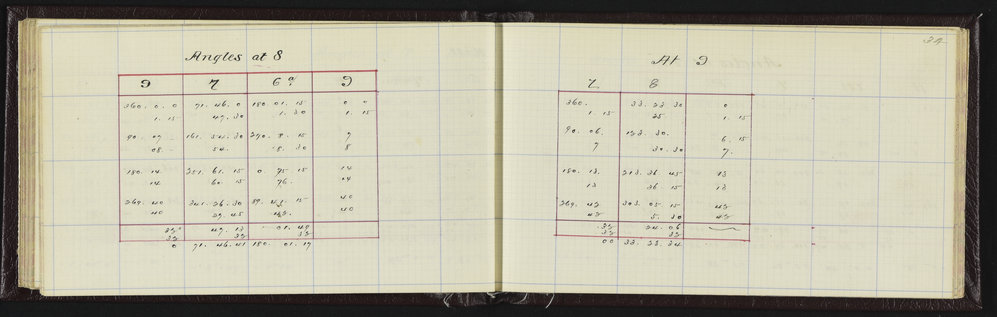 34
Angles at 8
9 7 6a 9
360. 0. 0 71. 46. 0 180. 01. 15 0 0
1. 15 47. 30 1. 30 1. 15
90. 07 161. 54. 30 270. 8. 15 7
08 54. 8. 30 8
180. 14 251. 61. 15 0. 75 15 14
14 60 15 76. 14
269. 40 341. 26. 30 89. 15 40
40 27. 45 40
47. 13 01. 48
33 33 33
0 71. 46. 41 180. 01. 17
At 9
7 8
360. 33. 23 30 0
1. 15 25 1. 15
90. 06. 123. 30. 6. 15
7 30. 30 7.
180. 13. 213. 36. 45 13
13 36 15 13
269. 43 303. 05. 15 43
43 5. 30 43
33 24. 06
33 33
00 33. 23. 34